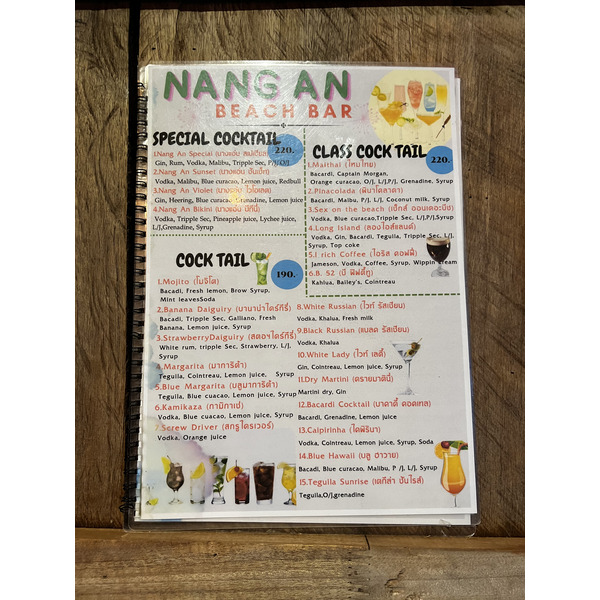 NANG AN
BEACH BAR
SPECIAL COCKTAIL
220.
1.Nang An Special
Gin, Rum, Vodka, Malibu, Tripple Sec, P/J,O/J
2.Nang An Sunset
Vodka, Malibu, Blue curacao, Lemon juice, Redbull
3.Nang An Violet
Gin, Heering, Blue curacao, Grenadine, Lemon juice
4.Nang An Bikini (นางแอ่น บิกินี่)
Vodka, Tripple Sec, Pineapple juice, Lychee juice,
L/J,Grenadine, Syrup
CLASS COCK TAIL
220.
1.Maithai (ไหมไทย)
Bacardi, Captain Morgan,
Orange curacao, O/J, L/J,P/J, Grenadine, Syrup
2.Pinacolada (พินาโคลาดา)
Bacardi, Maibu, P/J, L/J, Coconut milk, Syrup
3.Sex on the beach (เซ็กส์ ออนเดอะบีช)
Vodka, Blue curacao,Tripple Sec, L/J,P/J,Syrup
4.Long Island (ลองไอส์แลนด์)
Vodka, Gin, Bacardi, Teguila, Tripple Sec, L/J,
Syrup, Top coke
5.I rich Coffee (ไอริส คอฟฟี่)
Jameson, Vodka, Coffee, Syrup, Wippin cream
6.B. 52 (บี ฟิฟตี้ทู)
Kahlua, Bailey's, Cointreau
COCK TAIL
190.
1.Mojito (โมจิโต)
Bacardi, Fresh lemon, Brow Syrup,
Mint leavesSoda
2.Banana Daiguiry (บานาน่าไดร์กีรี่)
Bacardi, Tripple Sec, Galliano, Fresh
Banana, Lemon juice, Syrup
3.StrawberryDaiguiry (สตอฯไดร์กีรี่)
White rum, tripple Sec, Strawberry, L/J,
Syrup
4.Margarita (มาการิต้า)
Teguila, Cointreau, Lemon juice, Syrup
5.Blue Margarita (บลูมาการิต้า)
Teguila, Blue cuacao, Lemon juice, Syrup
6.Kamikaza (กามิกาเซ่)
Vodka, Blue cuacao, Lemon juice, Syrup
7.Screw Driver (สกรูไดรเวอร์)
Vodka, Orange juice
8.White Russian (ไวท์ รัสเซียน)
Vodka, Khalua, Fresh milk
9.Black Russian (แบลค รัสเซียน)
Vodka, Khalua
10.White Lady (ไวท์ เลดี้)
Gin, Cointreau, Lemon juice, Syrup
11.Dry Martini (ดรายมาตินี่)
Martini dry, Gin
12.Bacardi Cocktail (บาคาดี้ คอคเทล)
Bacardi, Grenadine, Lemon juice
13.Caipirinha (ไคพิรินา)
Vodka, Cointreau, Lemon juice, Syrup, Soda
14.Blue Hawaii (บลู ฮาวาย)
Bacadi, Blue curacao, Malibu, P /J, L/J, Syrup
15.Teguila Sunrise (เตกีล่า ซันไรส์)
Teguila,O/J,grenadine